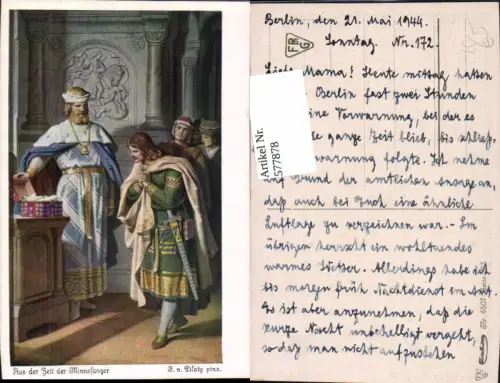 Aus der Zeit der Minnesänger
F. v. Piloty pinx.
Berlin, den 21. Mai 1944.
Sonntag. Nr. 172.
Liebe Mama! Heute mittag hatten
Berlin fast zwei Stunden
eine Vorwarnung, bei der es
ganze Zeit blieb, bis schließ-
warnung folgte. Ich nehme
Grund der amtlichen Ansage an,
daß auch bei Euch eine ähnliche
Luftlage zu verzeichnen war. - Im
übrigen herrscht ein wohltuendes
warmes Wetter. Allerdings habe ich
bis morgen früh Nachtdienst im Amt.
Es ist aber anzunehmen, daß die
kurze Nacht unbehelligt vergeht,
so daß man nicht aufzustehen
Artikel Nr.
577878